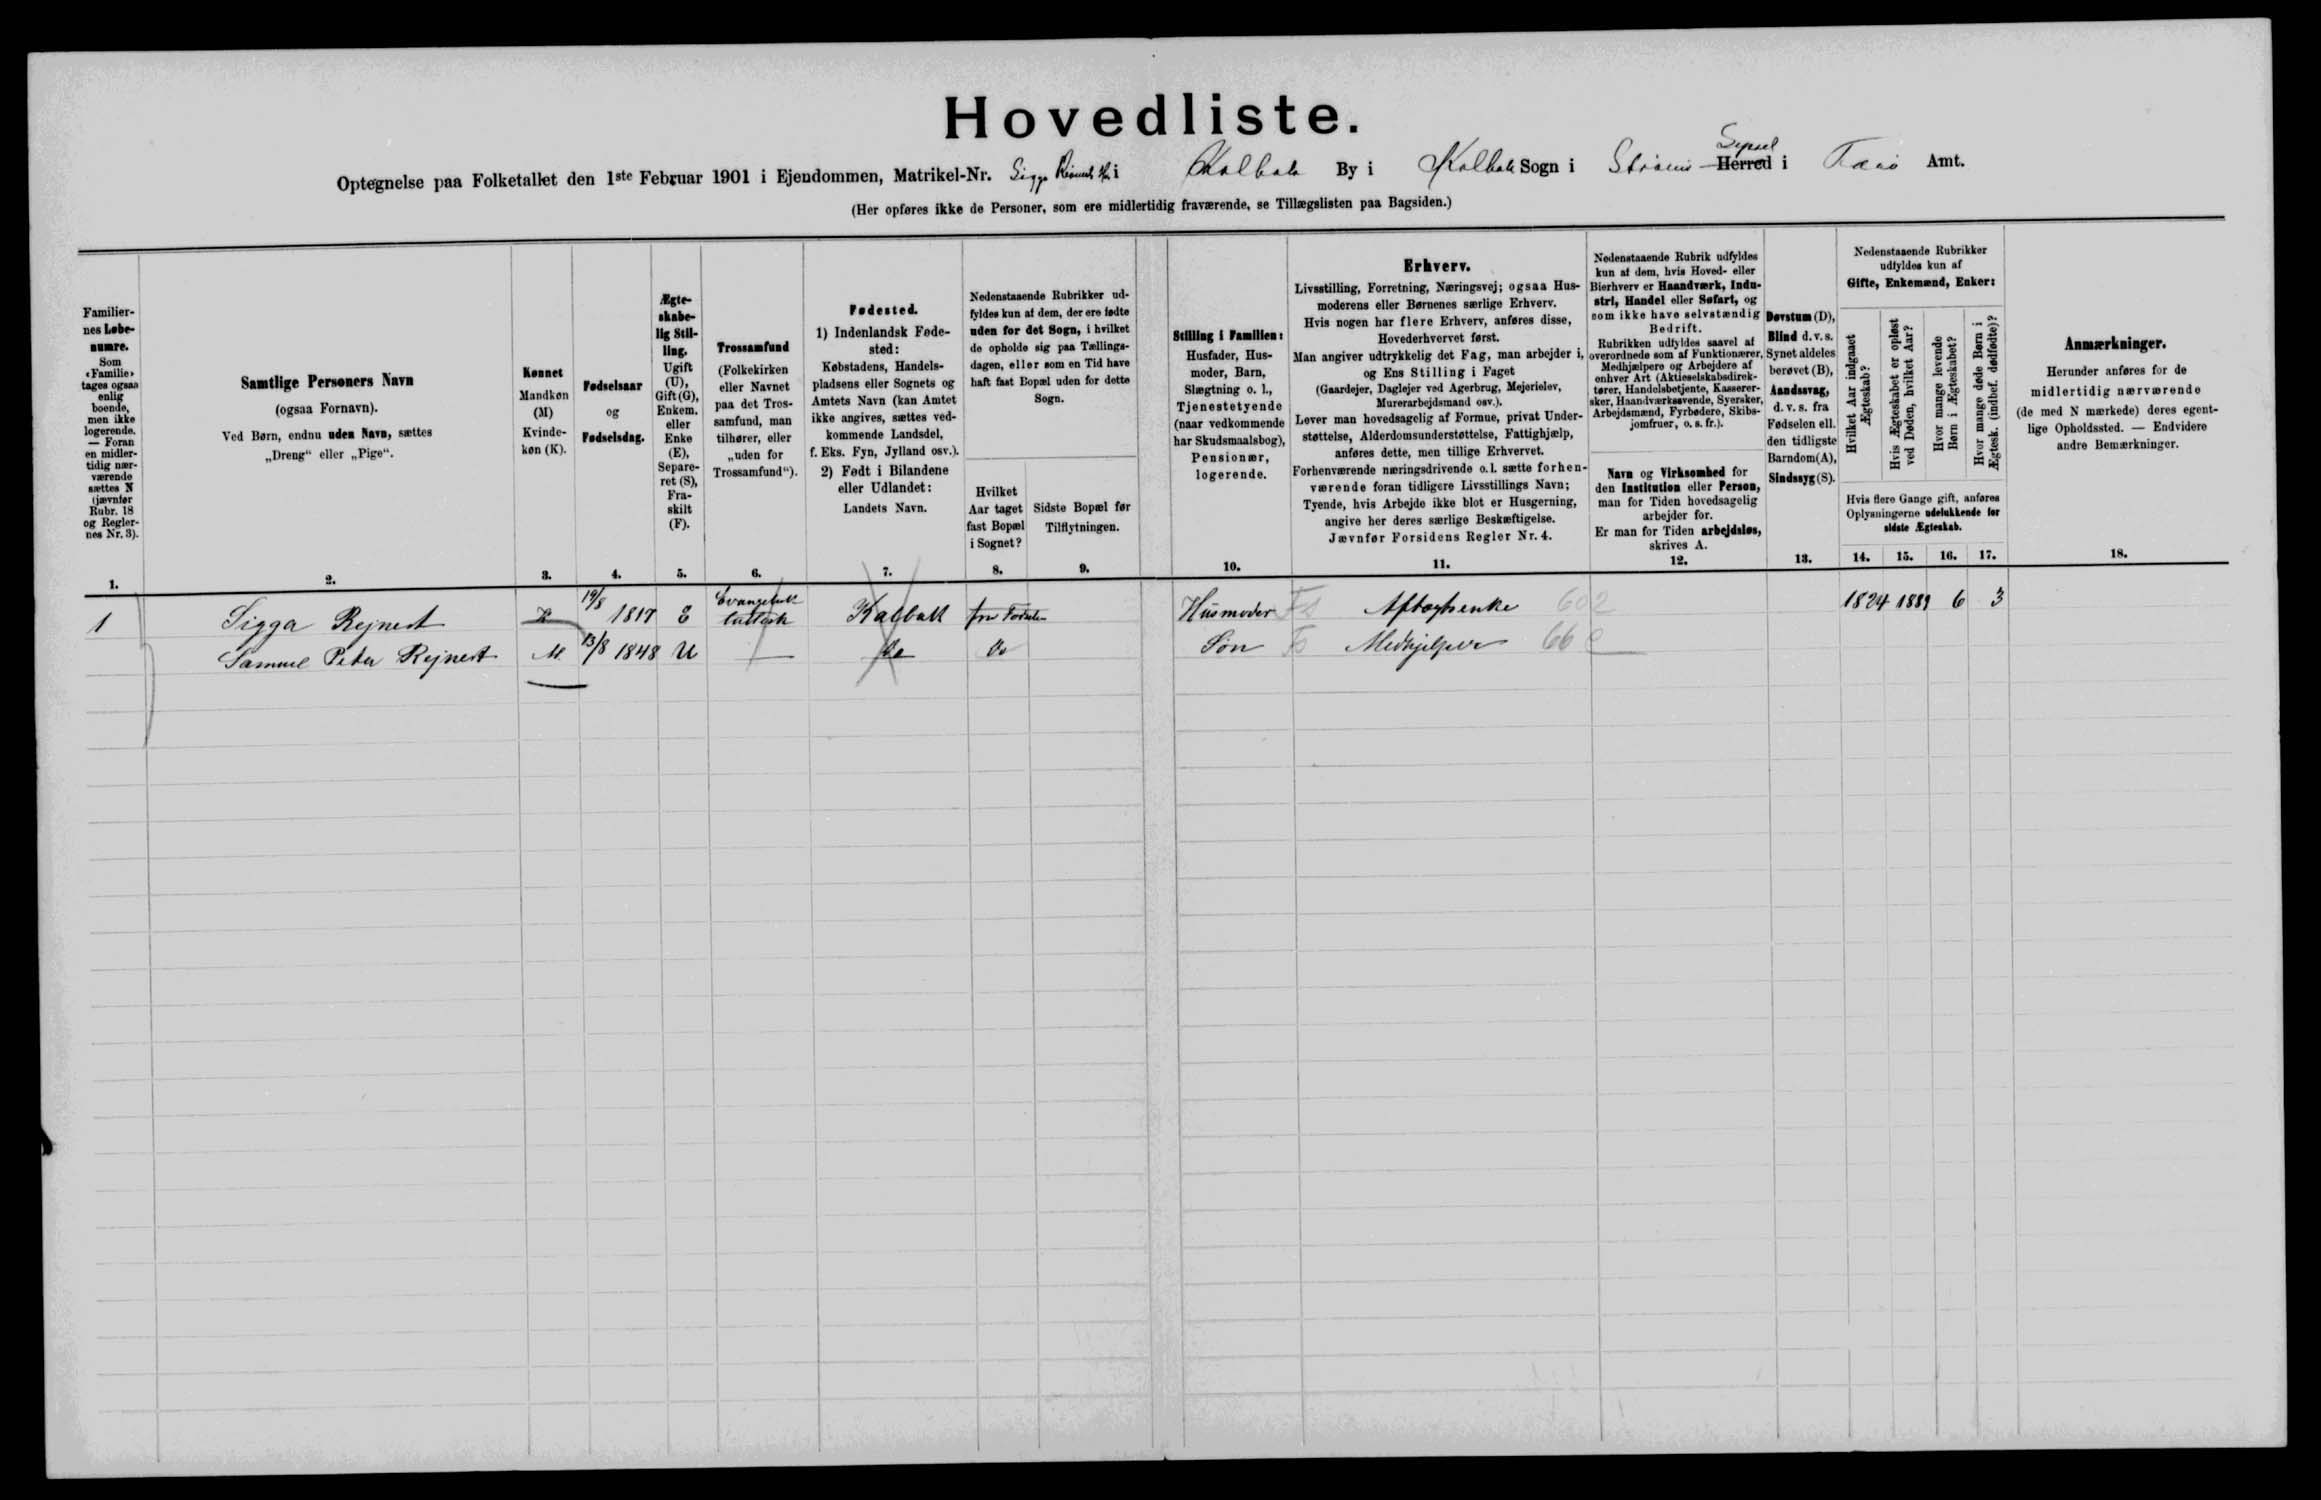 Hovedliste.
Optegnelse paa Folketallet den 1ste Februar 1901 i Ejendommen, Matrikel-Nr. Sigga i Kalbak By i Kalbak Sogn i Strømø Herred Syssel i Færø Amt.
(Her opføres ikke de Personer, som ere midlertidig fraværende, se Tillægslisten paa Bagsiden.)
Familier-
nes Løbe-
numre.
Som
«Familie»
tages ogsaa
enlig
boende,
men ikke
logerende.
— Foran
en midler-
tidig nær-
værende
sættes N
(jævnfør
Rubr. 18
og Regler-
nes Nr. 3).
1.
Samtlige Personers Navn
(ogsaa Fornavn).
Ved Børn, endnu uden Navn, sættes
„Dreng“ eller „Pige“.
2.
Kønnet
Mandkøn
(M)
Kvinde-
køn (K).
3.
Fødselsaar
og
Fødselsdag.
4.
Ægte-
skabe-
lig Stil-
ling.
Ugift
(U),
Gift (G),
Enkem.
eller
Enke
(E),
Separe-
ret (S),
Fra-
skilt
(F).
5.
Trossamfund
(Folkekirken
eller Navnet
paa det Tros-
samfund, man
tilhører, eller
„uden for
Trossamfund“).
6.
Fødested.
1) Indenlandsk Føde-
sted:
Købstadens, Handels-
pladsens eller Sognets og
Amtets Navn (kan Amtet
ikke angives, sættes ved-
kommende Landsdel,
f. Eks. Fyn, Jylland osv.).
2) Født i Bilandene
eller Udlandet:
Landets Navn.
7.
Nedenstaaende Rubrikker ud-
fyldes kun af dem, der ere fødte
uden for det Sogn, i hvilket
de opholde sig paa Tællings-
dagen, eller som en Tid have
haft fast Bopæl uden for dette
Sogn.
Hvilket
Aar taget
fast Bopæl
i Sognet?
8.
Sidste Bopæl før
Tilflytningen.
9.
Stilling i Familien:
Husfader, Hus-
moder, Barn,
Slægtning o. l.,
Tjenestetyende
(naar vedkommende
har Skudsmaalsbog),
Pensionær,
logerende.
10.
Erhverv.
Livsstilling, Forretning, Næringsvej; ogsaa Hus-
moderens eller Børnenes særlige Erhverv.
Hvis nogen har flere Erhverv, anføres disse,
Hovederhvervet først.
Man angiver udtrykkelig det Fag, man arbejder i,
og Ens Stilling i Faget
(Gaardejer, Daglejer ved Agerbrug, Mejerielev,
Murerarbejdsmand osv.).
Lever man hovedsagelig af Formue, privat Under-
støttelse, Alderdomsunderstøttelse, Fattighjælp,
anføres dette, men tillige Erhvervet.
Forhenværende næringsdrivende o. l. sætte forhen-
værende foran tidligere Livsstillings Navn;
Tyende, hvis Arbejde ikke blot er Husgerning,
angive her deres særlige Beskæftigelse.
Jævnfør Forsidens Regler Nr. 4.
11.
Nedenstaaende Rubrik udfyldes
kun af dem, hvis Hoved- eller
Bierhverv er Haandværk, Indu-
stri, Handel eller Søfart, og
som ikke have selvstændig
Bedrift.
Rubrikken udfyldes saavel af
overordnede som af Funktionærer,
Medhjælpere og Arbejdere af
enhver Art (Aktieselskabsdirek-
tører, Handelsbetjente, Kasserer-
sker, Haandværkssvende, Syersker,
Arbejdsmænd, Fyrbødere, Skibs-
jomfruer, o. s. fr.).
Navn og Virksomhed for
den Institution eller Person,
man for Tiden hovedsagelig
arbejder for.
Er man for Tiden arbejdsløs,
skrives A.
12.
Døvstum (D),
Blind d. v. s.
Synet aldeles
berøvet (B),
Aandssvag,
d. v. s. fra
Fødselen ell.
den tidligste
Barndom (A),
Sindssyg (S).
13.
Nedenstaaende Rubrikker
udfyldes kun af
Gifte, Enkemænd, Enker:
Hvilket Aar indgaaet
Ægteskab?
Hvis Ægteskabet er opløst
ved Døden, hvilket Aar?
Hvor mange levende
Børn i Ægteskabet?
Hvor mange døde Børn i
Ægtesk. (indbef. dødfødte)?
Hvis flere Gange gift, anføres
Oplysningerne udelukkende for
sidste Ægteskab.
14. 15. 16. 17.
Anmærkninger.
Herunder anføres for de
midlertidig nærværende
(de med N mærkede) deres egent-
lige Opholdssted. — Endvidere
andre Bemærkninger.
18.
1 Sigga Rejnert K 19/8 1817 E Evangelisk luttersk Kalbak fra Fødslen Husmoder Fs Aftægtsenke 602 1824 1889 6 3
Samuel Peter Rejnert M. 13/8 1848 U — Do Do Søn Fs Medhjelper 66